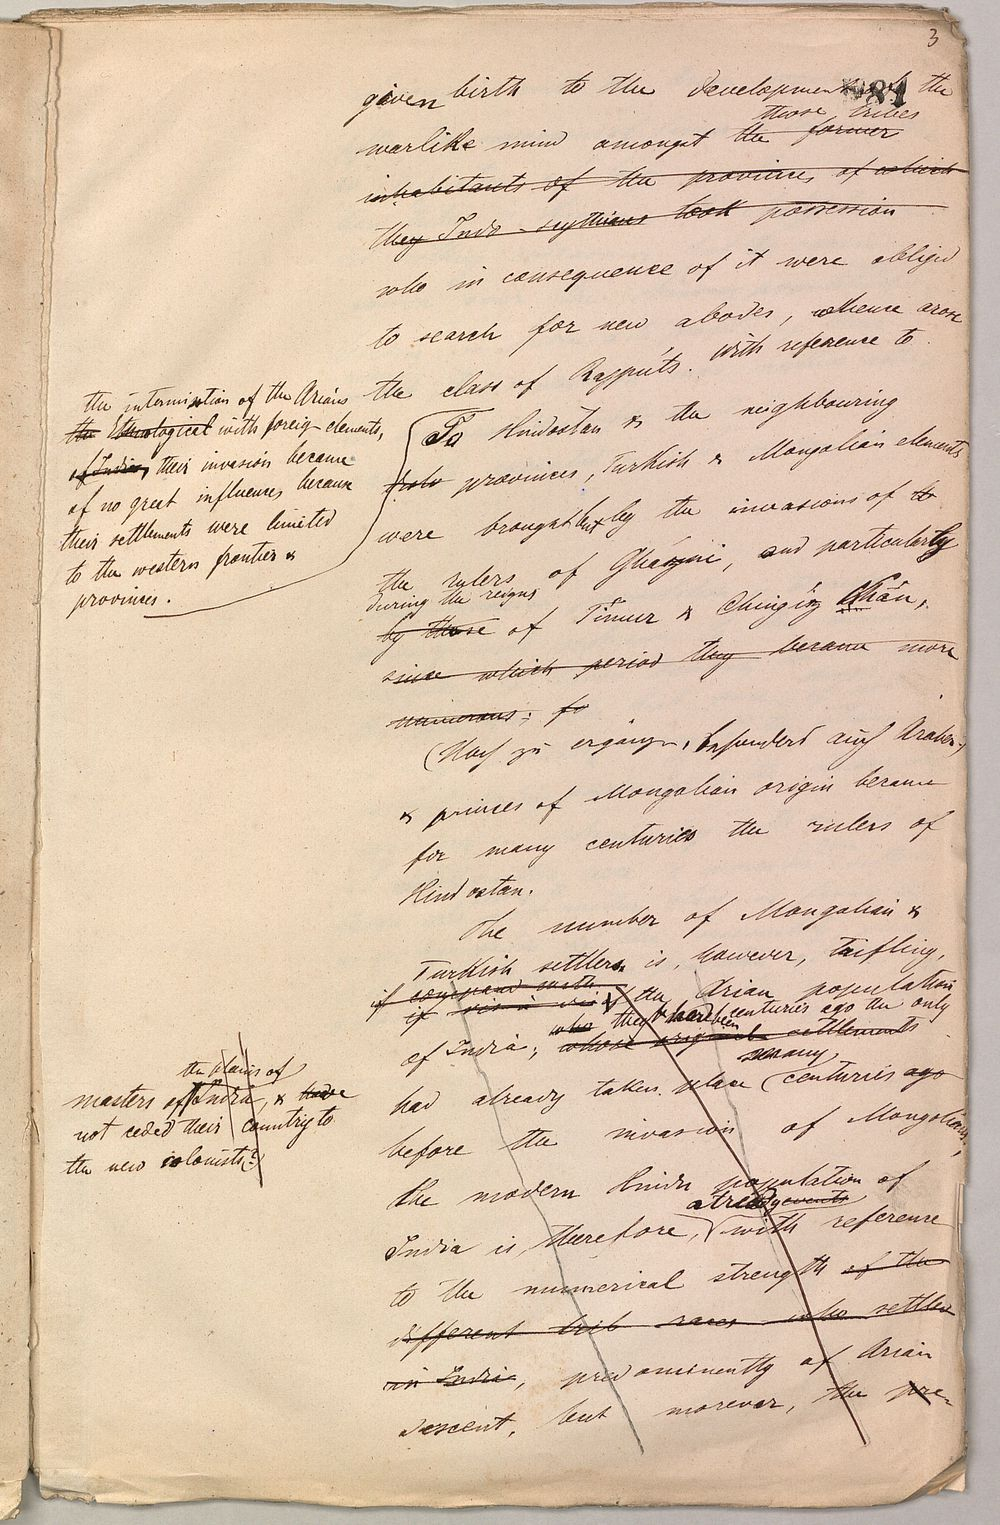 3
given birth to the development of the
81
those tribes
warlike mind amongst the former
inhabitants of the provinces, of which
they Indo-scythians took possession
who in consequence of it were obliged
to search for new abodes, whence arose
the class of Rajpúts. With reference to
the intermixtion of the Arians
the Ethnological with foreign elements,
of India, their invasion became
of no great influences because
their settlements were limited
to the western frontier &
provinces.
To Hindostan & the neighbouring
provinces, Turkish & Mongolian elements
were brought but by the invasions of the
the rulers of Gházni, and particularly
during the reigns
by those of Timur & Chingíz Khán,
since which period they became more
numerous; fo
(Noch zu ergänzen, besonders auch Araber)
& princes of Mongolian origin became
for many centuries the rulers of
Hindostan.
The number of Mongolian &
Turkish settlers is, however, trifling,
if compared with
if vis à vis of the Arian population
who they had been centuries ago the only
of India; whose original settlements
many
had already taken place centuries ago
before the invasion of Mongolians,
the plains of
masters of India, & have
not ceded their country to
the new colonists(?)
the modern Hindu population of
already events
India is, therefore, with reference
to the numerical strength of the
different trib races who settled
in India, predominently of Arian
descent, but morever, the pre-